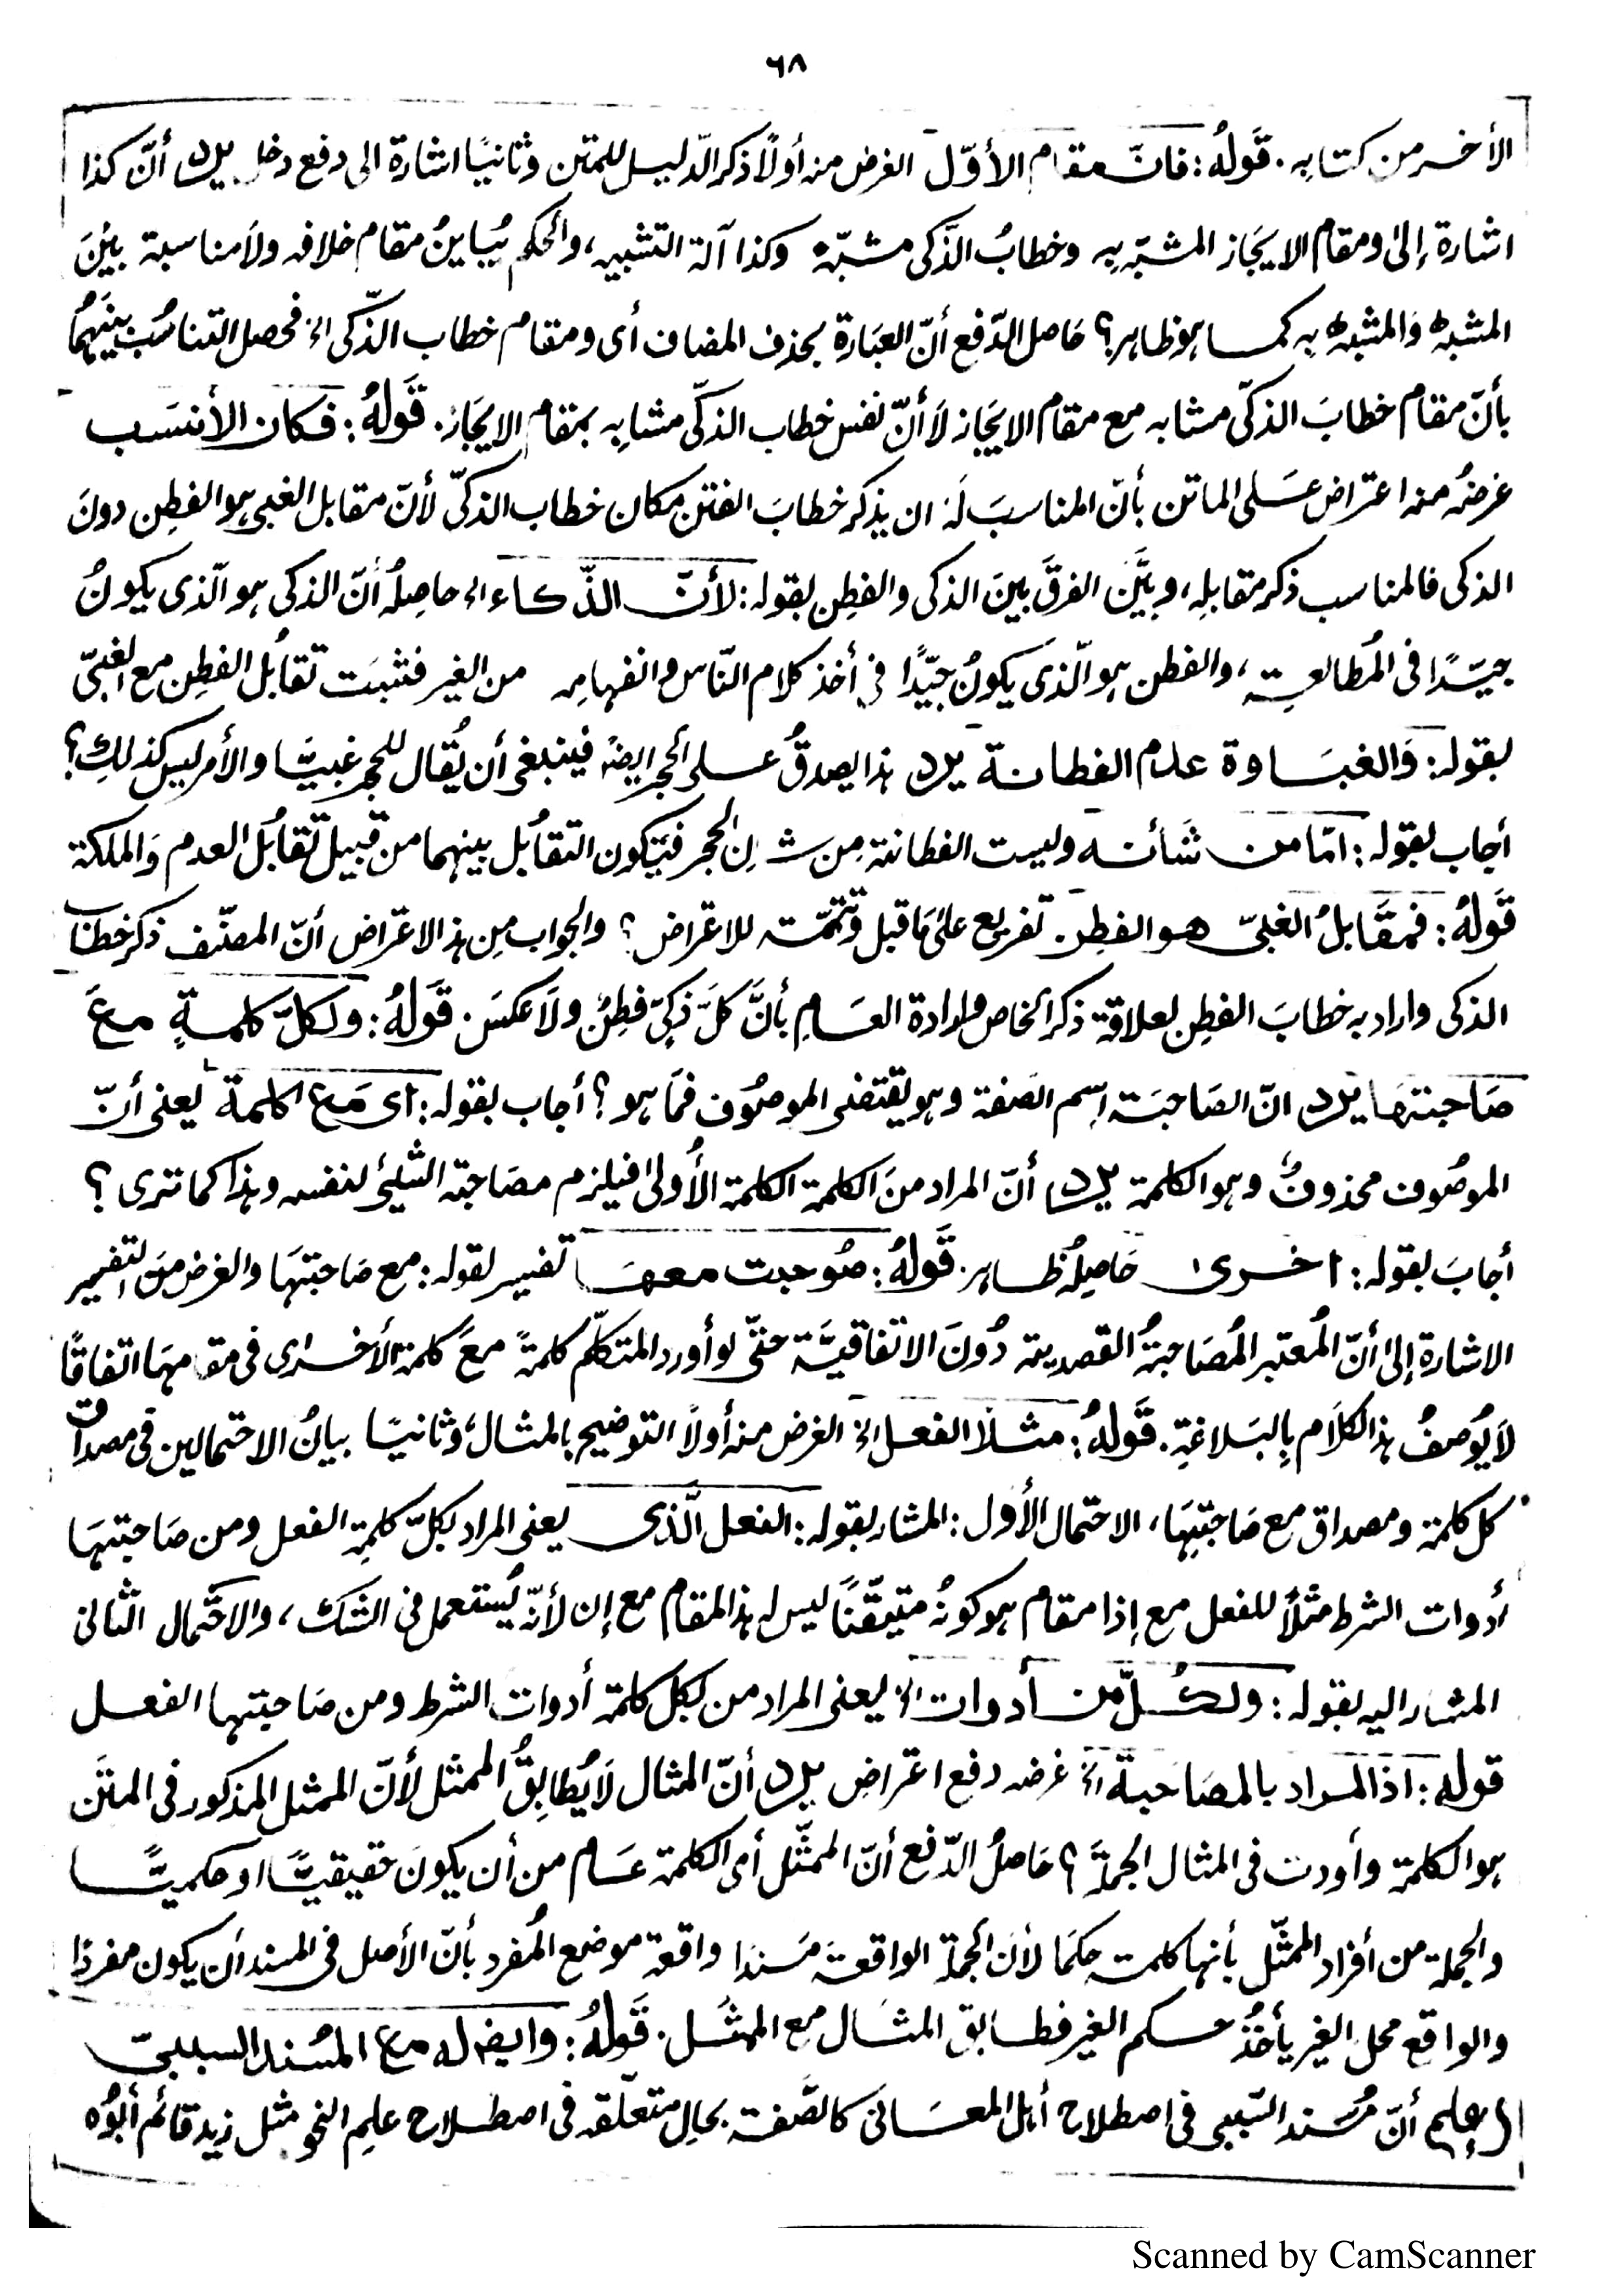 ٦٨
الأخر من كتابه. قَولُهُ: فانّ مقام الأوّل الغرض منه أولاً ذكر الدّليل للمتن وثانيًا اشارة الى دفع دخل يرد أنّ كذا
اشارة إلى ومقام الايجاز المشبّه به وخطابُ الذّكى مشبّه وكذا آلة التشبيه، والحكم يُباينُ مقام خلافه ولاَ مناسبة بَيْنَ
المشبه وَالمشبه به كما هو ظاهر؟ حَاصل الدّفع أنّ العبَارة بحذف المضاف أى ومقام خطاب الذّكى الخ فحصل التناسُب بينَهُمَا
بأنّ مقام خطابَ الذكىّ مشابه مع مقام الايجَاز لاَ أنّ نفس خطاب الذكىّ مشابِه بمقام الايجَاز. قَولهُ: فكان الأنسَب
غرضُه منه اعتراض عَلى الماتن بأنّ المناسبَ لَهٗ ان يذكر خطابَ الفتن مكان خطاب الذكىّ لأنّ مقابل الغبى هو الفطِن دونَ
الذكى فالمناسب ذكر مقابلِه، وبيَّن الفرقَ بينَ الذكى والفطِن بقوله: لأنّ الذّكاء الخ حاصِلُه أنّ الذكى هو الّذى يكونُ
جيّدًا فى المُطالعة، والفطن هو الّذى يكونُ جيّدًا فى أخذ كلام النّاس وانفهامِه من الغير فثبَت تقابُل الفطِن مع الغبىّ
بقوله: وَالغبَاوة عدم الفطانة يرد هذا يصدقُ على الحجر ايضًا فينبغى أن يُقال للحجر غبيًّا والأمر ليس كذلك؟
أجاب بقوله: امّا من شَأنه وليست الفطانة مِن شان الحجر فيَكون التقابُل بينهما من قبيل تقابُل العدم وَالملكة
قَولهُ: فمقَابلُ الغبىّ هو الفطِن. تفريع على مَا قبل وتتمّة للاعتراض؟ والجواب مِن هذا الاعتراض أنّ المصنّف ذكر خطاب
الذكى واراد به خطابَ الفطِن بعلاقة ذكر الخاص وارادة العَام بأنَّ كلَّ ذكىّ فطِنٌ ولاَ عكسَ. قَولهُ: ولكلّ كلمةٍ مع
صَاحبتهَا يرد انّ الصَاحبَة اِسم الصفة وهو يقتضى الموصُوف فمَا هو؟ أجاب بقوله: اى مَع كلمة يعنى أنّ
الموصُوف محذوفٌ وهو الكلمة يرد أنّ المراد منَ الكلمة الكلمة الأُولىٰ فيلزم مصَاحبة الشّيئ لنفسه وهذا كما ترى؟
أجابَ بقوله: اخرى حَاصِلُه ظاهر. قَولهُ: صُوحبت معهَا تفسير لقوله: مع صَاحبتهَا والغرض منَ التفسير
الاشارة إلىٰ أنّ المُعتبر المُصَاحبةُ القصدية دُونَ الاتفاقيَّة حتّى لو أورد المتكلّم كلمةً معَ كلمة الأخرٰى فى مقامهَا اتفاقًا
لاَ يُوصفُ هذا الكلاَم بِالبَلاغةِ. قَولهُ: مثلًا الفعل الخ الغرض منه أولاً التوضيح بالمثال، وثانيًا بيانُ الاحتمالين فى مصداق
كل كلمة ومصداق مع صَاحبتِهَا، الاحتمال الأول: المشار بقوله: الفعل الّذى يعنى المراد بكلّ كلمةِ الفعل ومن صَاحبتهَا
أدوات الشرط مثلًا للفعل مع إذا مقام هو كونُه متيقّنًا ليس له هذا المقام مع إن لأنّه يُستعمل فى الشك، والاحتمال الثانى
المشار اليه بقوله: ولكُلّ من أدوات الخ يعنى المراد من لكل كلمة أدوات الشرط ومن صَاحبتها الفعل
قوله: اذ المراد بالمصَاحبة الخ غرضه دفع اعتراضٍ يرد أنّ المثال لاَ يُطابِقُ الممثل لأنّ الممثل المذكور فى المتَن
هو الكلمة وأودت فى المثال الجملَة؟ حَاصلُ الدّفع أنّ الممثّل أى الكلمة عَام من أن يكونَ حقيقيًّا او حكميًّا
والجملة من أفراد الممثّل بأنها كلمة حكمًا لأنّ الجملة الواقعة مسَندا واقعة موضع المُفرد بأنّ الأصل فى المسند أن يكون مفردًا
والواقع محل الغير يأخُذُ حكم الغير فطابق المثَال مع الممثَّل. قَولهُ: وايضا له مع المسُند السببىّ
إعلم أنّ مُسند السّببى فى اصطلاح أهل المعَانى كالصّفة بحالِ متعلّقه فى اصطلاح علِم النحو مثل زيد قائم أبوُه
Scanned by CamScanner